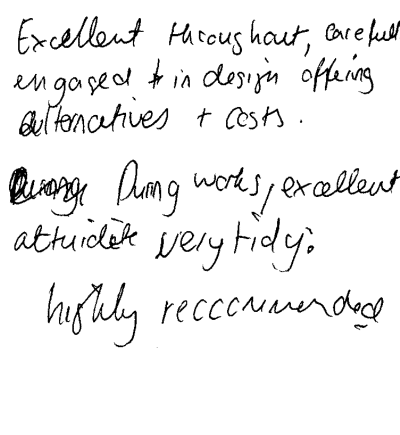 Excellent throughout, carefull
engaged + in design offering
alternatives + costs.
During works, excellent
attuidite very tidy.
highly reccommended